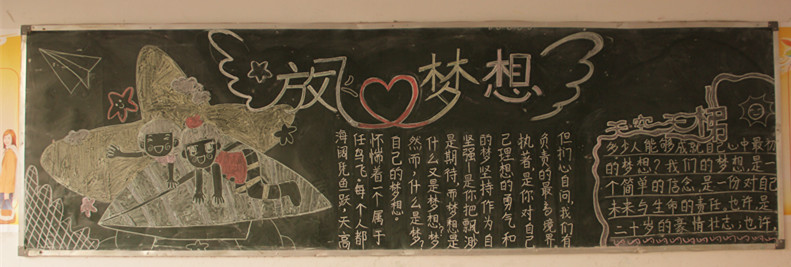 放飞梦想
海阔凭鱼跃,天高
任鸟飞。每个人都
怀惴着一个属于
自己的梦想。
然而,什么是梦?
什么又是梦想?梦
是期待,而梦想是
坚强,是你把飘渺
的梦坚持,作为自
己理想的勇气和
执着,是你对自己
负责的最高境界
但扪心自问,我们有
天空天梯
多少人能够成就自己心中最初
的梦想?我们的梦想,是一
个简单的信念,是一份对自己
未来与生命的责任,也许,是
二十岁的豪情壮志;也许,